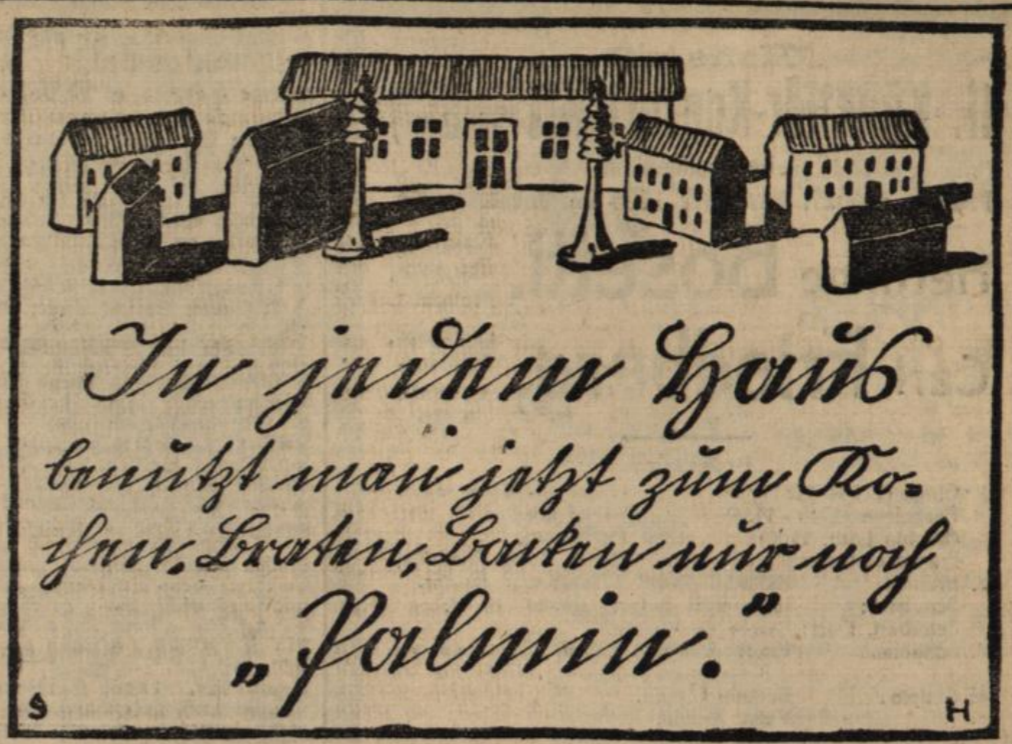 In jedem Haus
benützt man jetzt zum Ko=
chen, Braten, Backen nur noch
„Palmin.“
S H